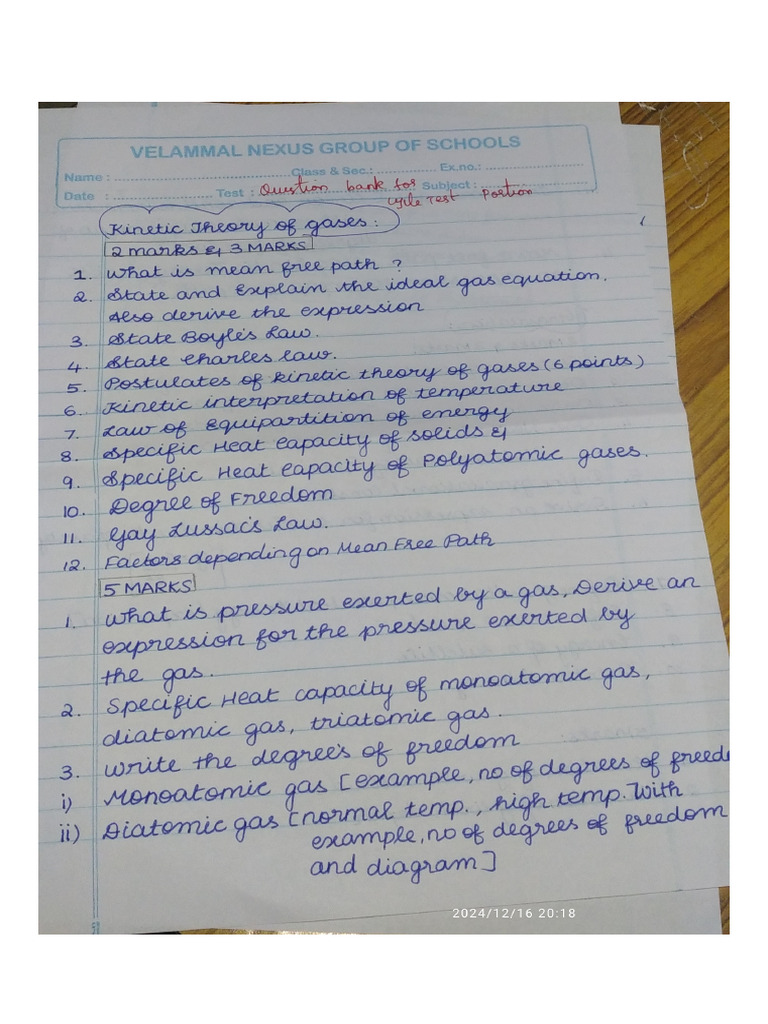 VELAMMAL NEXUS GROUP OF SCHOOLS
Name : Class & Sec.: Ex.no.:
Date : Test : Question bank for Subject :
cycle Test Portion
Kinetic Theory of gases :
2 marks & 3 MARKS
1. What is mean free path ?
2. State and Explain the ideal gas equation.
Also derive the expression
3. State Boyle's Law.
4. State Charles law.
5. Postulates of kinetic theory of gases (6 points)
6. Kinetic interpretation of temperature
7. Law of Equipartition of energy
8. Specific Heat capacity of solids &
9. Specific Heat capacity of Polyatomic gases.
10. Degree of Freedom
11. Gay Lussac's Law.
12. Factors depending on Mean Free Path
5 MARKS
1. What is pressure exerted by a gas, Derive an
expression for the pressure exerted by
the gas.
2. Specific Heat capacity of monoatomic gas,
diatomic gas, triatomic gas.
3. Write the degrees of freedom
i) Monoatomic gas [example, no of degrees of freed
ii) Diatomic gas [normal temp., high temp. With
example, no of degrees of freedom
and diagram]
51
2024/12/16 20:18